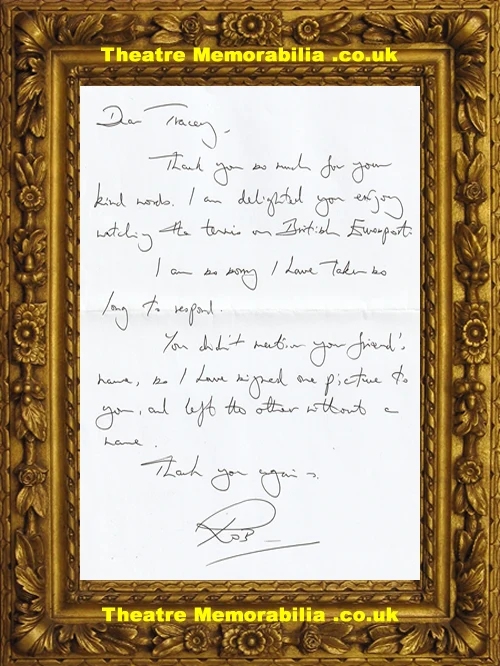 Theatre Memorabilia .co.uk
Dear Tracey,
Thank you so much for your
kind words. I am delighted you enjoy
watching the tennis on British Eurosport.
I am so sorry I have taken so
long to respond.
You didn't mention your friend's
name, so I have signed one picture to
you, and left the other without a
name.
Thank you again.
Rob
Theatre Memorabilia .co.uk